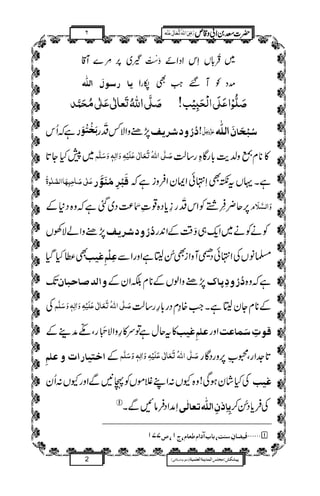 حضرت سعد بن ابی وقاص رضی اللہ تعالٰی عنہ
۲
میں قرباں اِس ادائے دَسْت گیری پر مرے آقا
مدد کو آ گئے جب بھی پکارا یا رسول اللہ
صَلُّوْا عَلَی الْحَبِیْب! صَلَّی اللہُ تَعَالٰی عَلٰی مُحَمَّد
سُبْحٰنَ اللہ عَزَّوَجَلَّ! دُرُود شریف پڑھنے والا کس قَدَر بَخْتْوَر ہے کہ اُس
کا نام مع ولدیت بارگاہِ رسالت صَلَّی اللہُ تَعَالٰی عَلَیْہِ وَاٰلِہٖ وَسَلَّمَ میں پیش کیا جاتا
ہے۔ یہاں یہ نکتہ بھی انتہائی ایمان افروز ہے کہ قَبْرِ مُنَوَّر عَلٰی صَاحِبِہَا الصَّلٰوۃُ
وَالسَّلَام پر حاضر فرشتے کو اس قَدَر زیادہ قوتِ سَماعت دی گئی ہے کہ وہ دنیا کے
کونے کونے میں ایک ہی وَقت کے اندر دُرُود شریف پڑھنے والے لاکھوں
مسلمانوں کی انتہائی دھیمی آواز بھی سُن لیتا ہے اور اسے عِلْمِ غیب بھی عطا کیا گیا
ہے کہ وہ دُرُودِ پاک پڑھنے والوں کے نام بلکہ ان کے والد صاحبان تک
کے نام جان لیتا ہے۔ جب خادمِ دربارِ رسالت صَلَّی اللہُ تَعَالٰی عَلَیْہِ وَاٰلِہٖ وَسَلَّمَ کی
قوتِ سَماعت اور علمِ غیب کا یہ حال ہے تو سرکارِ والا تَبار، مکے مدینے کے
تاجدار، محبوبِ پروردگار صَلَّی اللہُ تَعَالٰی عَلَیْہِ وَاٰلِہٖ وَسَلَّمَ کے اختیارات و علمِ
غیب کی کیا شان ہوگی! وہ کیوں نہ اپنے غلاموں کو پہچانیں گے اور کیوں نہ اُن
کی فریاد سُن کر بِاِذْنِ اللہ تعالٰی امداد فرمائیں گے۔ ①
①……فیضانِ سنت، باب آدابِ طعام، ج۱، ص۱۷۷
پیشکش: مجلس المدینۃ العلمیۃ (دعوتِ اسلامی)
2